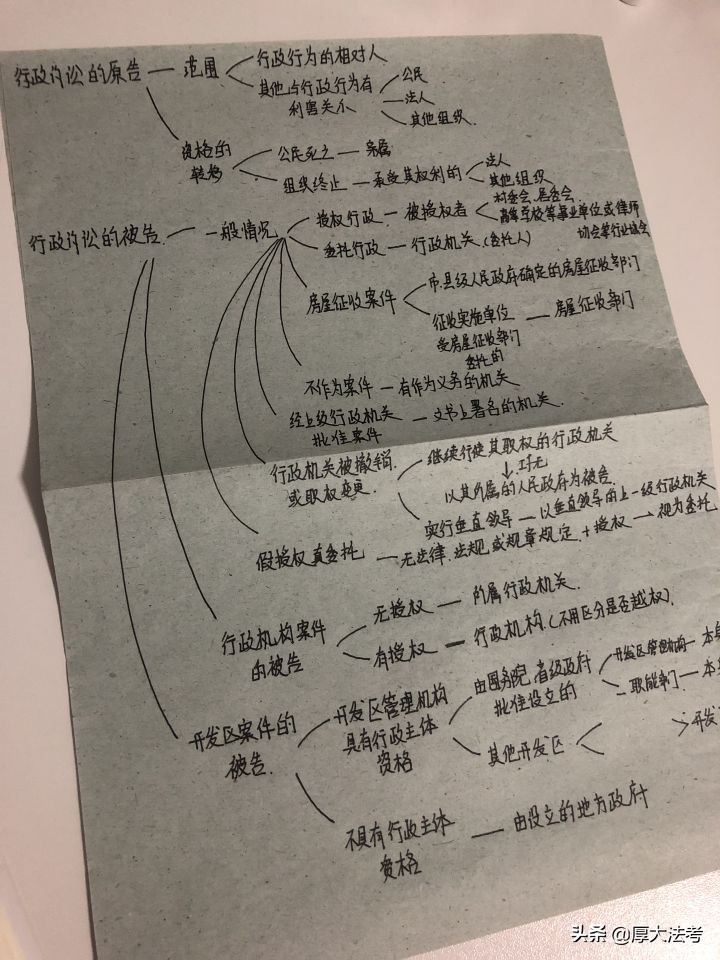 行政诉讼的原告 — 范围
行政行为的相对人
其他与行政行为有
利害关系
公民
法人
其他组织.
资格的
转移
公民死亡 — 亲属
组织终止 — 承受其权利的
法人
其他组织
行政诉讼的被告 — 一般情况
授权行政 — 被授权者
村委会、居委会
高等学校等事业单位或律师
协会等行业协会
委托行政 — 行政机关.(委托人)
房屋征收案件
市.县级人民政府确定的房屋征收部门
征收实施单位 — 房屋征收部门
受房屋征收部门
委托的
不作为案件 — 有作为义务的机关
经上级行政机关 — 文书上署名的机关.
批准案件
行政机关被撤销.
或职权变更.
继续行使其职权的行政机关
↓ 若无
以其所属的人民政府为被告.
实行垂直领导 — 以垂直领导的上一级行政机关
假授权真委托 — 无法律.法规.或规章规定.+授权 → 视为委托
行政机构案件
的被告
无授权 — 所属行政机关.
有授权 — 行政机构.(不用区分是否越权).
开发区案件的
被告.
开发区管理机构
具有行政主体
资格
由国务院.省级政府
批准设立的
开发区管理机构 — 本
职能部门 — 本
其他开发区
开发
不具有行政主体
资格 — 由设立的地方政府
头条 @厚大法考